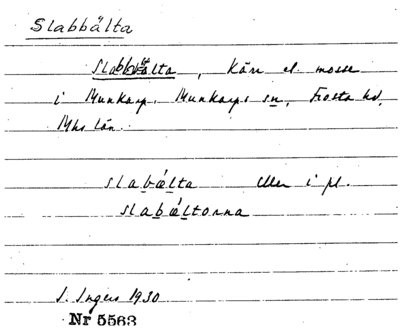 Slabbälta
Slabbälta, Kärr el. mosse
i Munkarp. Munkarps sn, Frosta hd,
Mhs län.
slabǽlta eller i pl.
slabǽltorna
I. Ingers 1930
Nr 5563